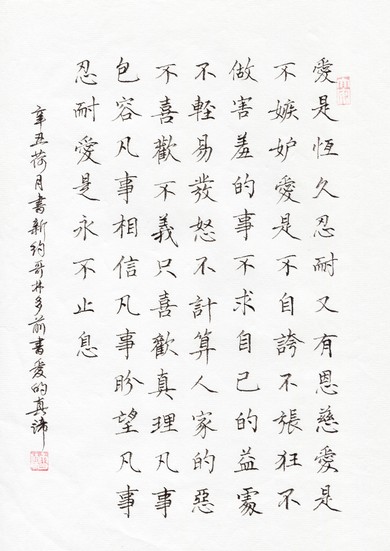 愛是恆久忍耐又有恩慈愛是
不嫉妒愛是不自誇不張狂不
做害羞的事不求自己的益處
不輕易發怒不計算人家的惡
不喜歡不義只喜歡真理凡事
包容凡事相信凡事盼望凡事
忍耐愛是永不止息
辛丑荷月書新約哥林多前書愛的真諦